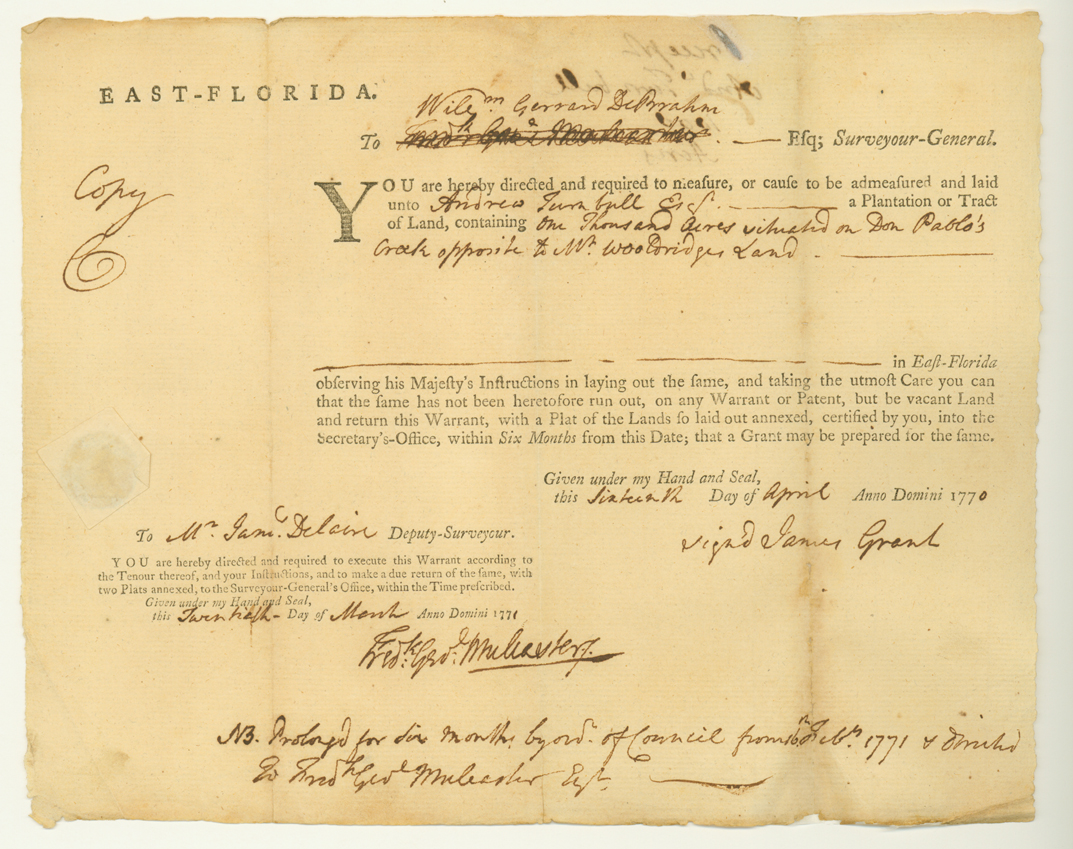 EAST-FLORIDA.
Will.m Gerrard DeBrahm
To Fred.k Geo. Mulcaster Esq; Surveyour-General.
Copy
YOU are hereby directed and required to measure, or cause to be admeasured and laid
unto Andrew Turnbull Esq.r a Plantation or Tract
of Land, containing One Thousand Acres situated on Don Pablo's
Creek opposite to Mr. Wooldridges Land.
in East-Florida
observing his Majesty's Instructions in laying out the same, and taking the utmost Care you can
that the same has not been heretofore run out, on any Warrant or Patent, but be vacant Land
and return this Warrant, with a Plat of the Lands so laid out annexed, certified by you, into the
Secretary's-Office, within Six Months from this Date; that a Grant may be prepared for the same.
Given under my Hand and Seal,
this Sixteenth Day of April Anno Domini 1770
signed James Grant
To Mr. Jam.s Delaire Deputy-Surveyour.
YOU are hereby directed and required to execute this Warrant according to
the Tenour thereof, and your Instructions, and to make a due return of the same, with
two Plats annexed, to the Surveyour-General's Office, within the Time prescribed.
Given under my Hand and Seal,
this Twentieth Day of March Anno Domini 1771
Fred.k Geo. Mulcaster
NB. Prolong'd for six months by ord.r of Council from Feb.ry 1771 & directed
to Fred.k Geo.e Mulcaster Esq.r